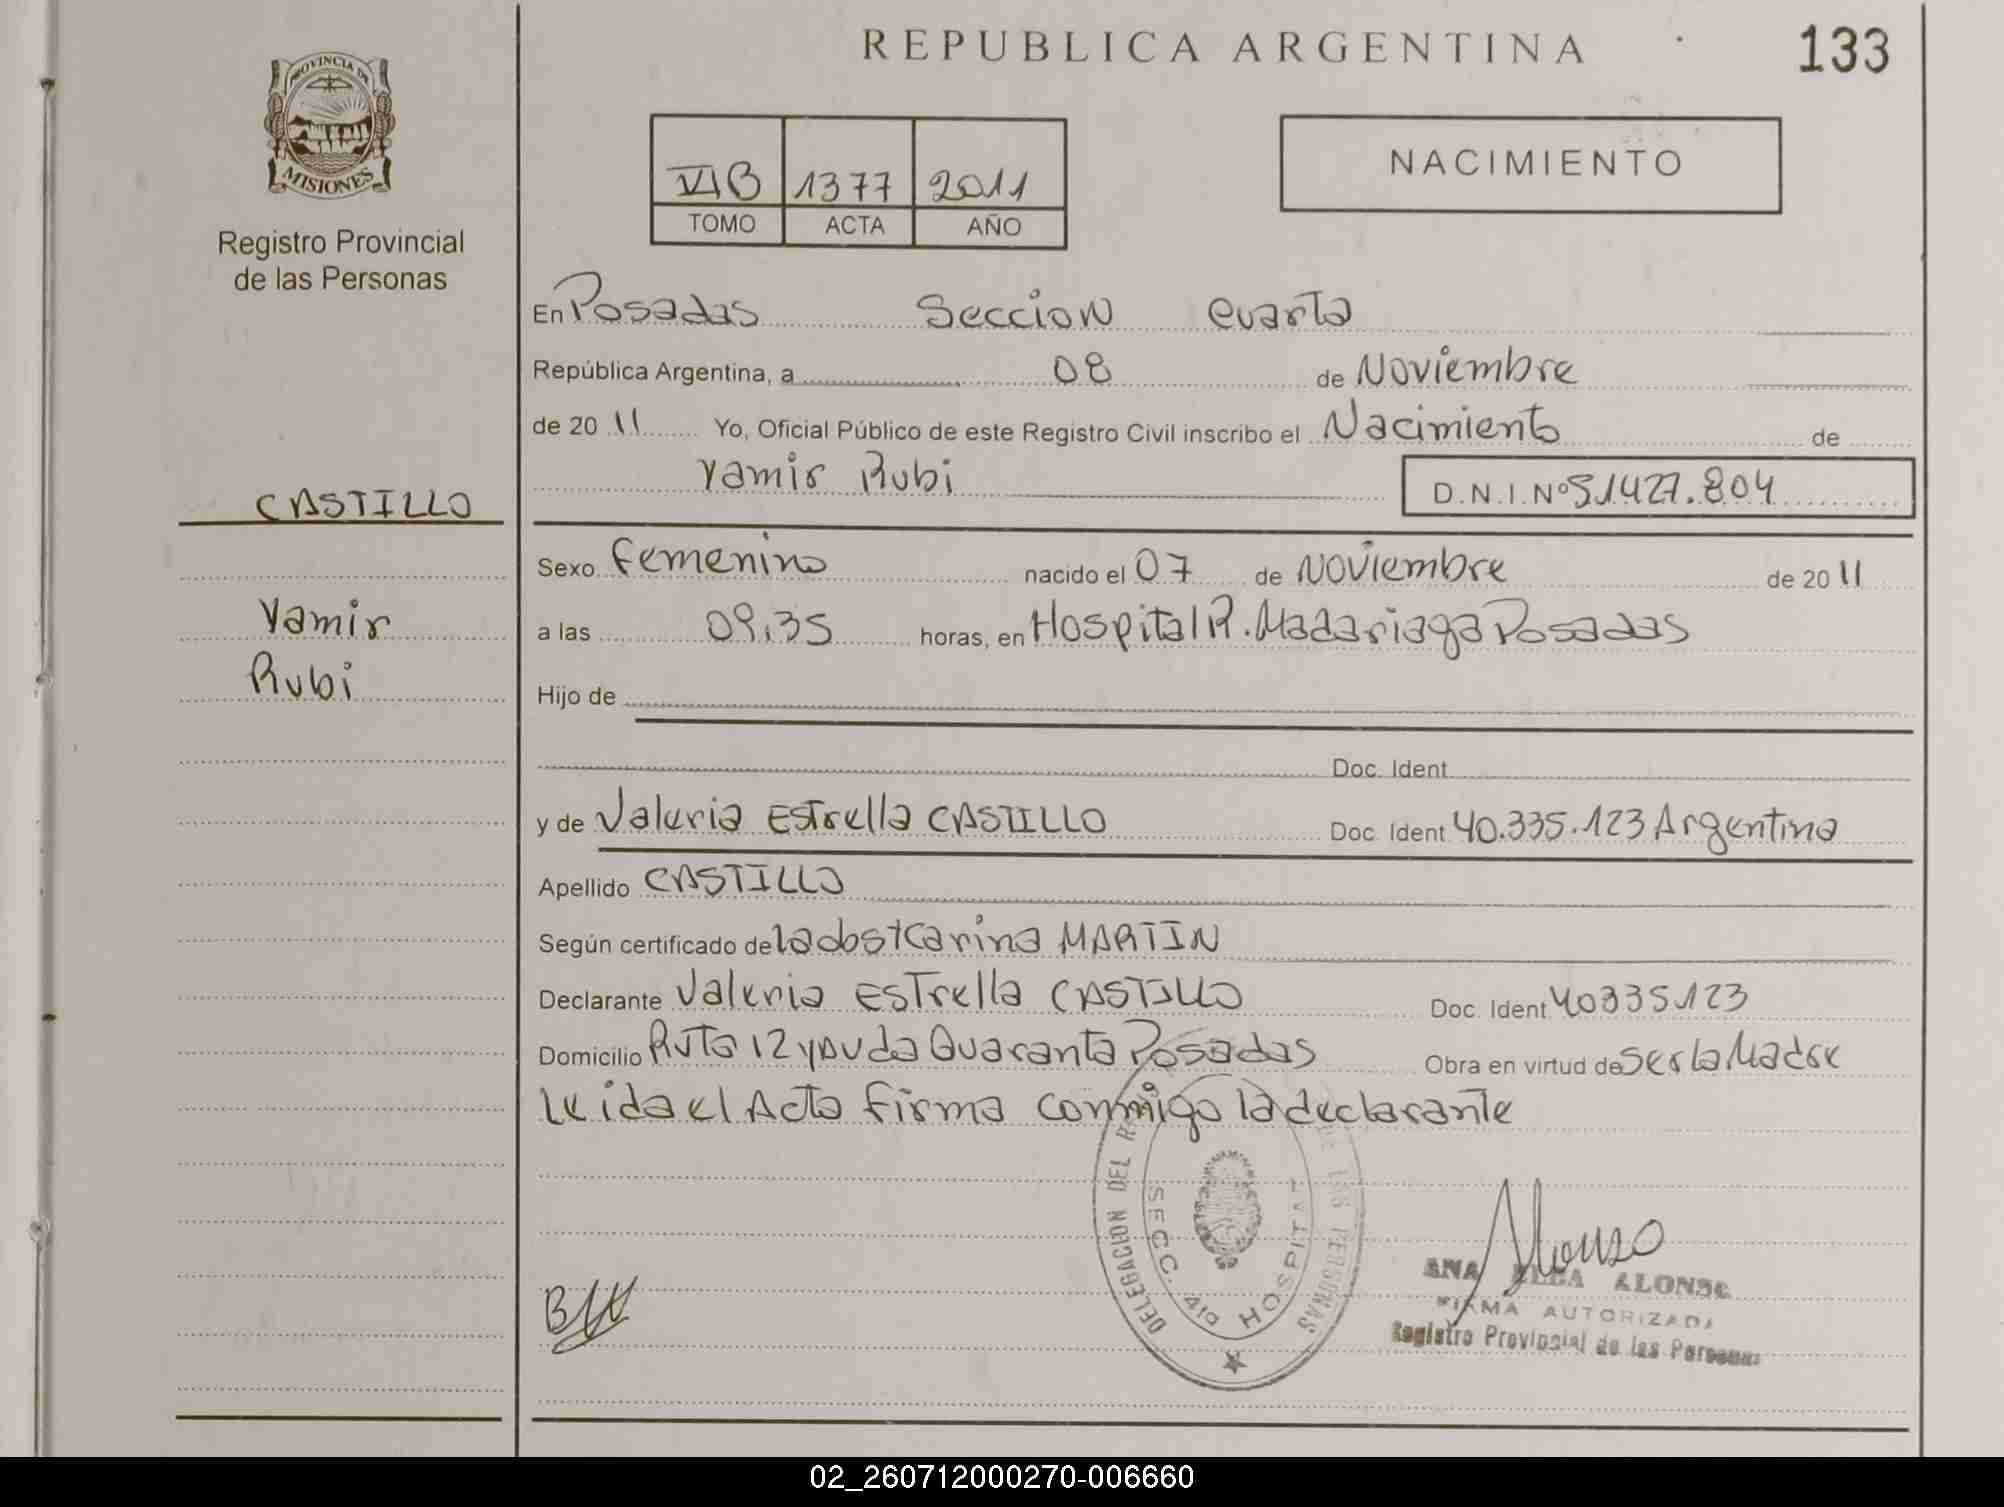 REPUBLICA ARGENTINA
133
PROVINCIA DE
MISIONES
Registro Provincial
de las Personas
VIB 1377 2011
TOMO ACTA AÑO
NACIMIENTO
En Posadas Seccion Cuarta
República Argentina, a 08 de Noviembre
de 20 11 Yo, Oficial Público de este Registro Civil inscribo el Nacimiento de
Yamir Rubi D.N.I.Nº 51427.804
CASTILLO
Yamir
Rubi
Sexo Femenino nacido el 07 de Noviembre de 20 11
a las 09,35 horas, en Hospital R. Madariaga Posadas
Hijo de
Doc. Ident
y de Valeria Estrella CASTILLO Doc. Ident 40.335.123 Argentina
Apellido CASTILLO
Según certificado de la obst Carina MARTIN
Declarante Valeria Estrella CASTILLO Doc. Ident 40335123
Domicilio Ruta 12 y Avda Quaranta Posadas Obra en virtud de ser la Madre
Leida el Acta firma conmigo la declarante
DELEGACION DEL DE LAS PERSONAS
SECC. 4ta HOSPITAL
Alonso
ANA ELBA ALONSO
FIRMA AUTORIZADA
Registro Provincial de las Personas
02_260712000270-006660